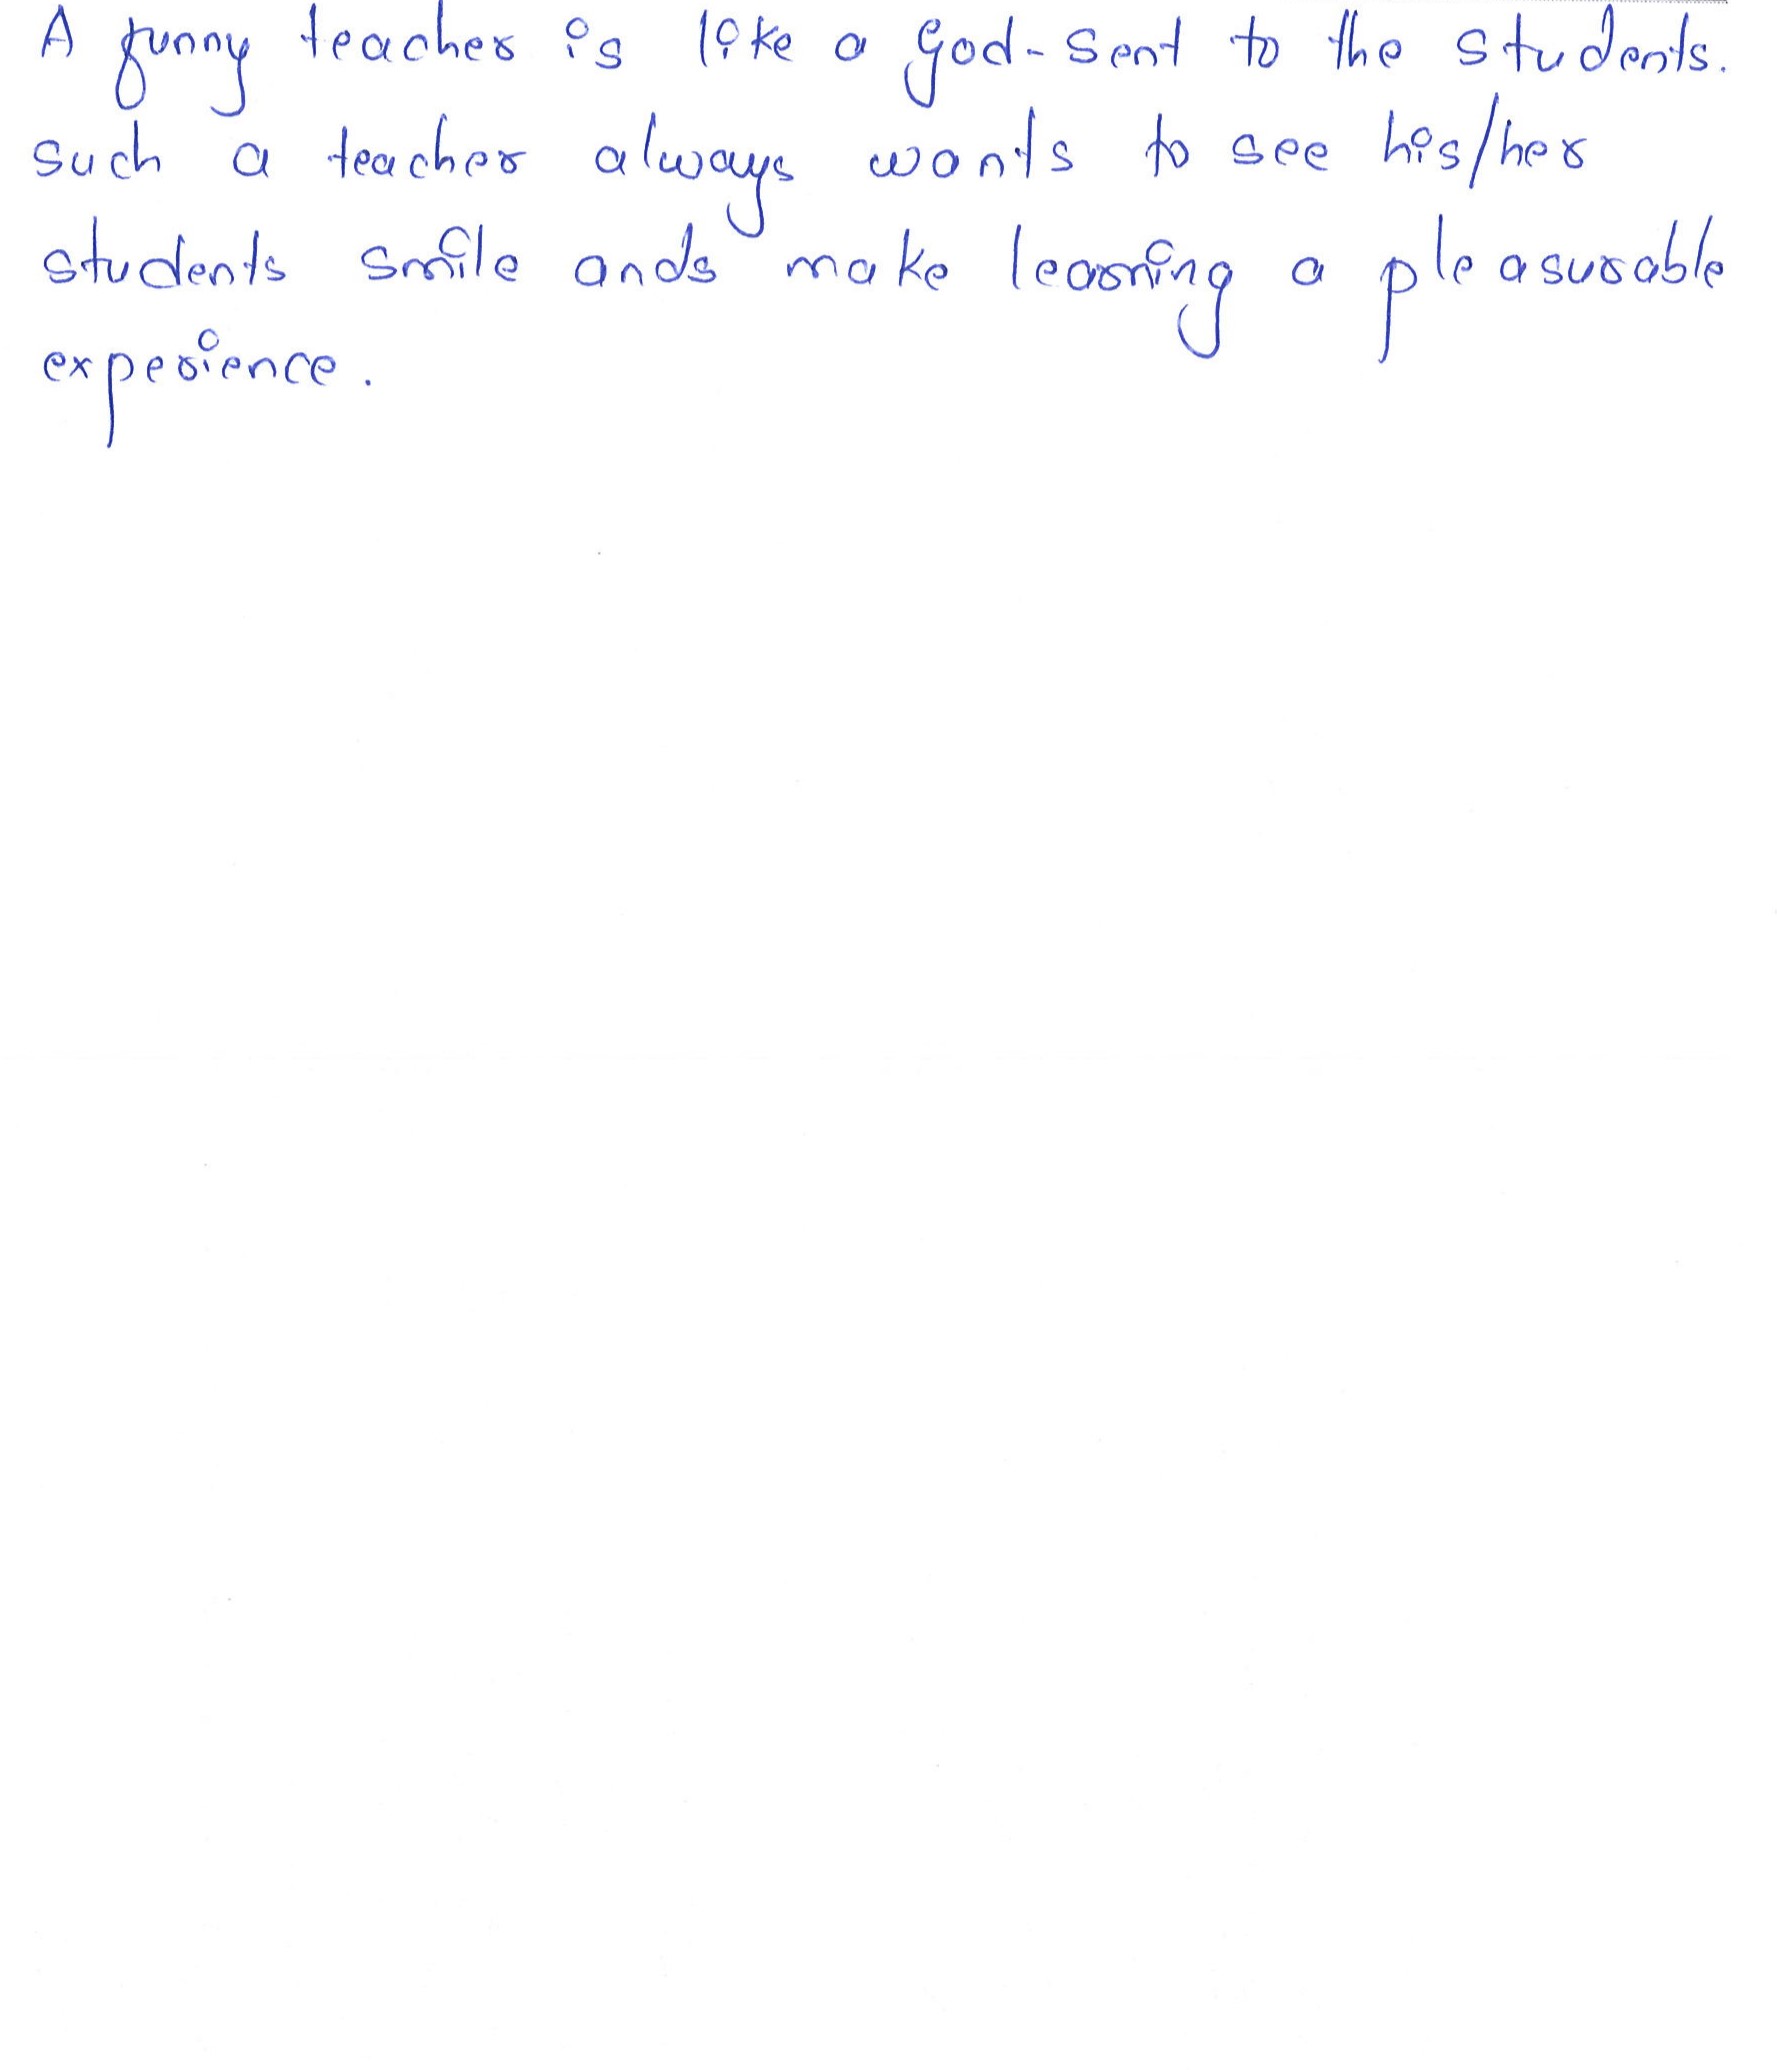 A funny teacher is like a God-sent to the students.
such a teacher always wants to see his/her
students smile ands make learning a pleasurable
experience.